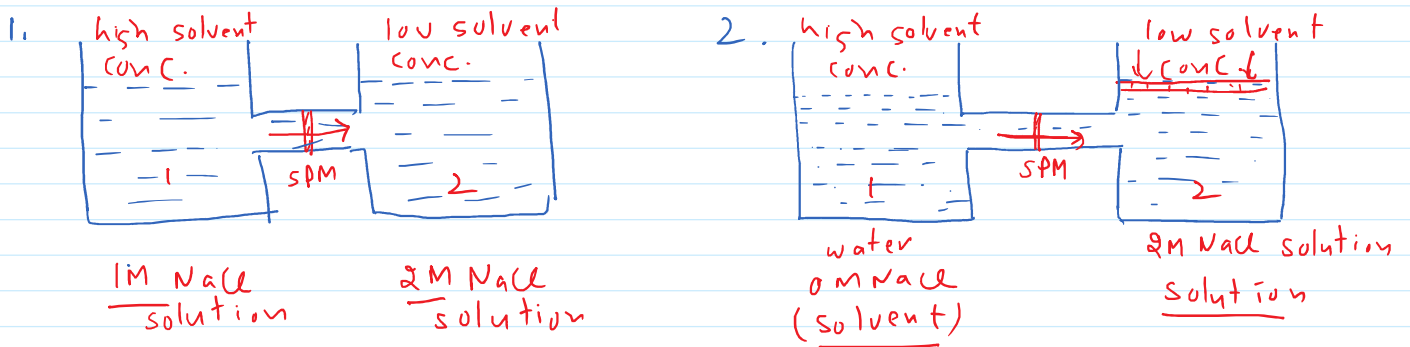 1.
high solvent
conc.
low solvent
conc.
1
SPM
2
1M NaCl
solution
2M NaCl
solution
2.
high solvent
conc.
low solvent
conc.
1
SPM
2
water
0 M NaCl
(solvent)
2M NaCl solution
solution